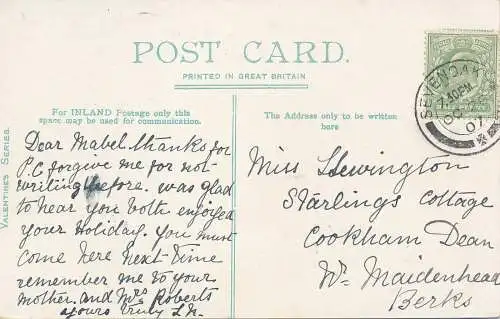 POST CARD.
PRINTED IN GREAT BRITAIN
For INLAND Postage only this
space may be used for communication.
The Address only to be written
here
VALENTINE'S SERIES.
SEVENOAKS
7.40 PM
OC
07
Dear Mabel thanks for
P.C forgive me for not
writing before. was glad
to hear you both enjoyed
your Holiday. You must
come here next time
remember me to your
mother. and Mrs Roberts
yours truly
Miss Llewington
Starlings Cottage
Cookham Dean
Nr. Maidenhead
Berks